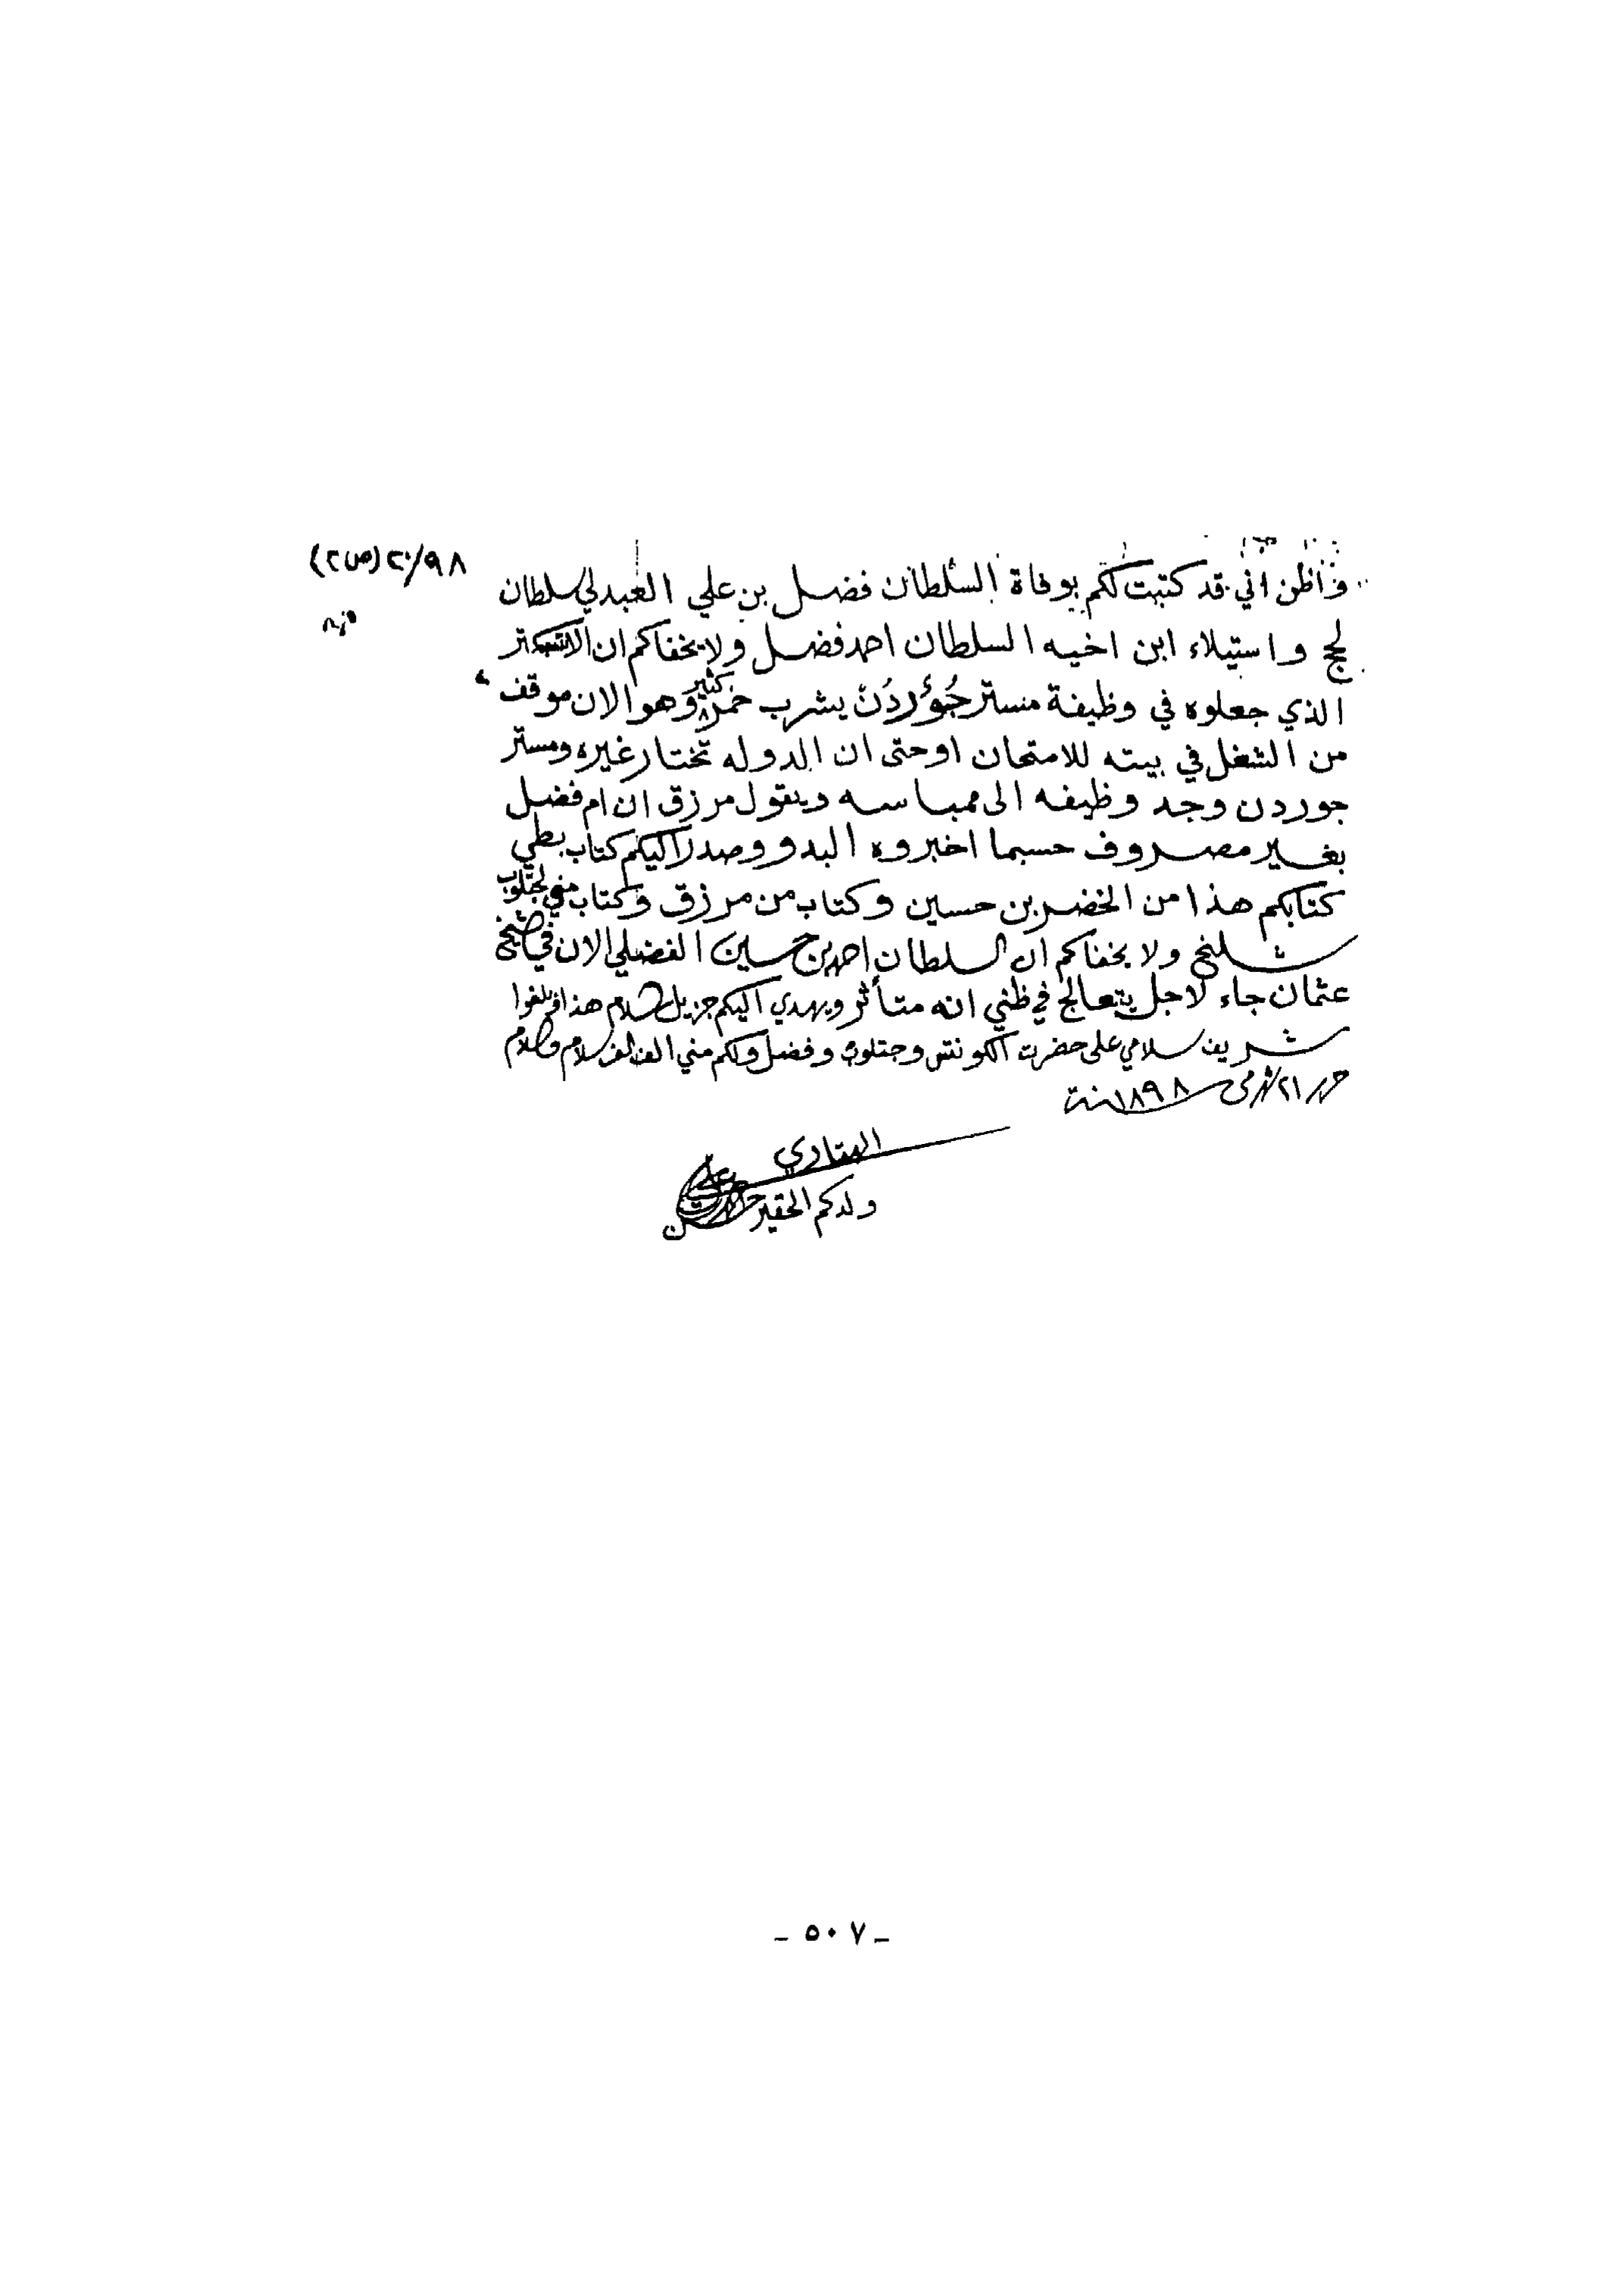 ٢٠/٩٨ (ص٢)
واظن اني قد كتبت لكم بوفاة السلطان فضل بن علي العبدلي سلطان
لحج واستيلاء ابن اخيه السلطان احمد فضل ولا يخفاكم ان
الذي جعلوه في وظيفة مستر جُوُردُن يشرب خمر كثير وهو الان موقف
من الشغل في بيته للامتحان او حتى ان الدوله تختار غيره ومستر
جوردن وجد وظيفه الى ممباسه ويقول مرزق ان ام فضل
بغير مصروف حسبما اخبروه البدو وصدر اليكم كتاب بطي
كتابكم هذا من الخضر بن حسين وكتاب من مرزق وكتاب مني لجتلوب
شلنج ولا يخفاكم ان السلطان احمد بن حسين الفضلي الان في شيخ
عثمان جاء لاجل يتعالج في ظني انه متأثر ويهدي اليكم جزيل السلام هذا وبلغوا
شريف سلامي على حضرت الكونتس وجتلوب وفضل ولكم مني الف الف سلام والسلام
حرر ٢١ في سنة ١٨٩٨
ولدكم الحقير
- ٥٠٧ -